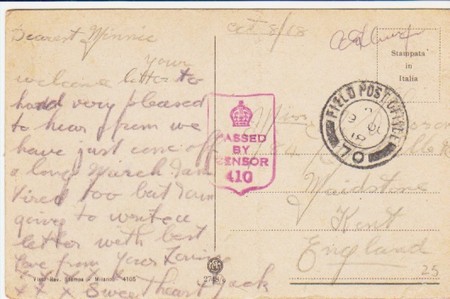 Dearest Winnie
Your
welcome letter to
hand very pleased
to hear from
have just come off
a long March I am
tired too but I am
going to write a
letter with best
love from Your Loving
x x x Sweetheart Jack
Oct 8/18
Stampata
in
Italia
FIELD POST OFFICE
70
PASSED
BY
CENSOR
410
Maidstone
Kent
England
25